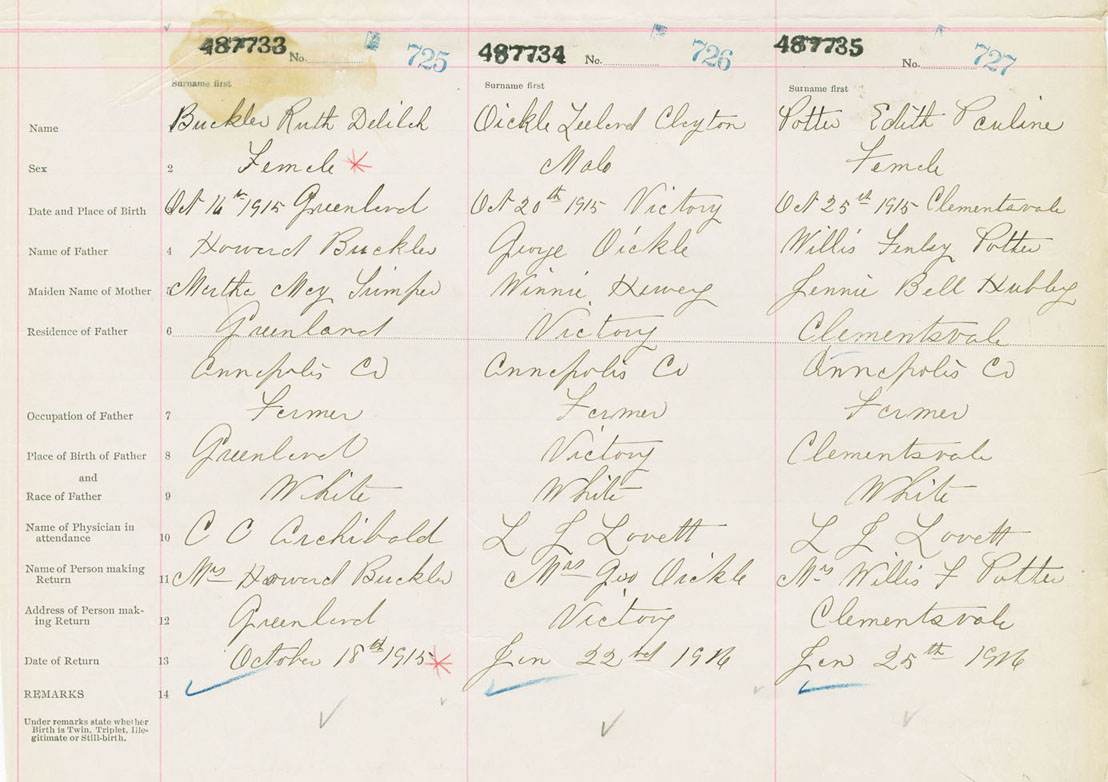 487733 No. 725 487734 No. 726 487735 No. 727
Surname first Surname first Surname first
Name Buckler Ruth Delilah Oickle Leeland Clayton Potter Edith Pauline
Sex 2 Female Male Female
Date and Place of Birth Oct 1915 Greenland Oct 20th 1915 Victory Oct 25 1915 Clementsvale
Name of Father 4 Howard Buckler George Oickle Willis Finley Potter
Maiden Name of Mother Martha May Trimper Winnie Jennie Bell Hubley
Residence of Father 6 Greenland Victory Clementsvale
Annapolis Co Annapolis Co Annapolis Co
Occupation of Father 7 Farmer Farmer Farmer
Place of Birth of Father 8 Greenland Victory Clementsvale
and
Race of Father 9 White White White
Name of Physician in
attendance 10 C C Archibald L J Lovett L J Lovett
Name of Person making
Return 11 Mrs Howard Buckler Mrs Geo Oickle Mrs Willis F Potter
Address of Person mak-
ing Return 12 Greenland Victory Clementsvale
Date of Return 13 October 18th 1915 Jan 22nd 1916 Jan 25th 1916
REMARKS 14
Under remarks state whether
Birth is Twin, Triplet, Ille-
gitimate or Still-birth.